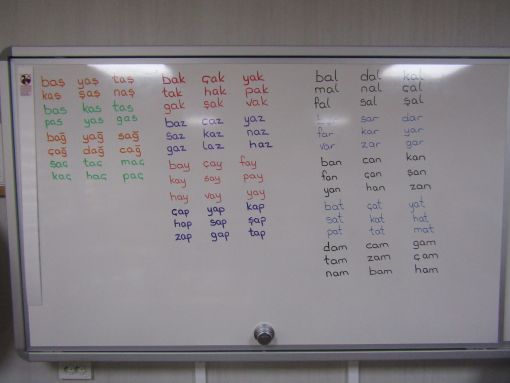 baş yaş taş
kaş şaş naş
bas kas tas
pas yas gas
bağ yağ sağ
çağ dağ cağ
saç taç maç
kaç haç paç
bak çak yak
tak hak pak
gak şak vak
baz caz yaz
saz kaz naz
gaz laz haz
bay çay fay
kay say pay
hay vay yay
çap yap kap
hap sap şap
zap gap tap
bal dal kal
mal nal çal
fal sal şal
sar dar
far kar yar
var zar gar
ban can kan
fan çan şan
yan han zan
bat çat yat
sat kat hat
pat tat mat
dam cam gam
tam zam çam
nam bam ham